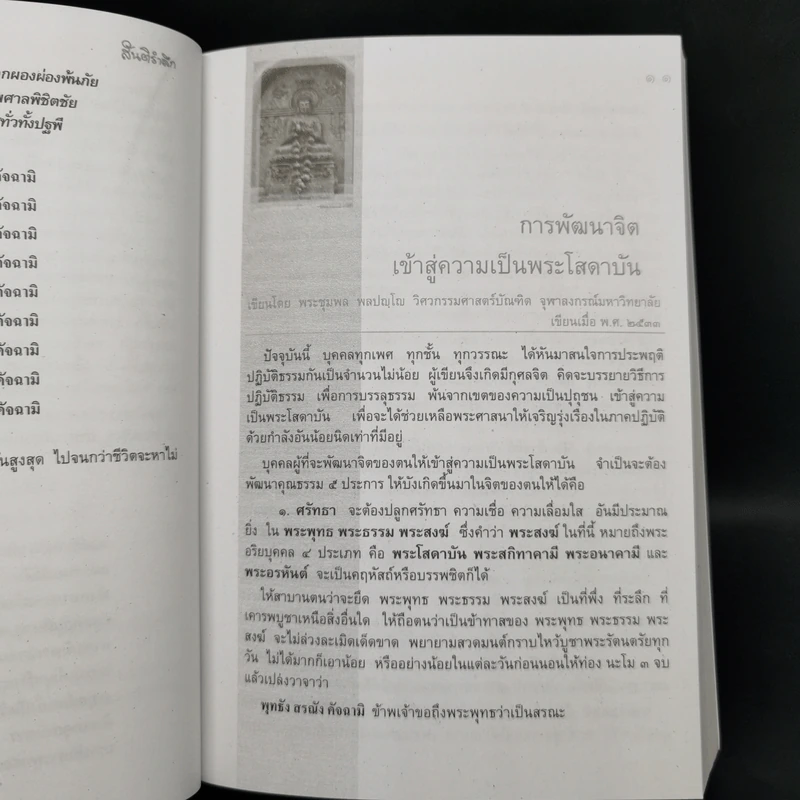 สันติรำลึก
กผองผ่องพ้นภัย
ศาลพิชิตชัย
ทั่วทั้งปฐพี
คัจฉามิ
คัจฉามิ
คัจฉามิ
คัจฉามิ
คัจฉามิ
คัจฉามิ
คัจฉามิ
คัจฉามิ
คัจฉามิ
นสูงสุด ไปจนกว่าชีวิตจะหาไม่
๑๑
การพัฒนาจิต
เข้าสู่ความเป็นพระโสดาบัน
เขียนโดย พระชุมพล พลปญฺโญ วิศวกรรมศาสตร์บัณฑิต จุฬาลงกรณ์มหาวิทยาลัย
เขียนเมื่อ พ.ศ. ๒๕๓๓
ปัจจุบันนี้ บุคคลทุกเพศ ทุกชั้น ทุกวรรณะ ได้หันมาสนใจการประพฤติ
ปฏิบัติธรรมกันเป็นจำนวนไม่น้อย ผู้เขียนจึงเกิดมีกุศลจิต คิดจะบรรยายวิธีการ
ปฏิบัติธรรม เพื่อการบรรลุธรรม พ้นจากเขตของความเป็นปุถุชน เข้าสู่ความ
เป็นพระโสดาบัน เพื่อจะได้ช่วยเหลือพระศาสนาให้เจริญรุ่งเรืองในภาคปฏิบัติ
ด้วยกำลังอันน้อยนิดเท่าที่มีอยู่
บุคคลผู้ที่จะพัฒนาจิตของตนให้เข้าสู่ความเป็นพระโสดาบัน จำเป็นจะต้อง
พัฒนาคุณธรรม ๕ ประการ ให้บังเกิดขึ้นมาในจิตของตนให้ได้คือ
๑. ศรัทธา จะต้องปลูกศรัทธา ความเชื่อ ความเลื่อมใส อันมีประมาณ
ยิ่ง ใน พระพุทธ พระธรรม พระสงฆ์ ซึ่งคำว่า พระสงฆ์ ในที่นี้ หมายถึงพระ
อริยบุคคล ๔ ประเภท คือ พระโสดาบัน พระสกิทาคามี พระอนาคามี และ
พระอรหันต์ จะเป็นคฤหัสถ์หรือบรรพชิตก็ได้
ให้สาบานตนว่าจะยึด พระพุทธ พระธรรม พระสงฆ์ เป็นที่พึ่ง ที่ระลึก ที่
เคารพบูชาเหนือสิ่งอื่นใด ให้ถือตนว่าเป็นข้าทาสของ พระพุทธ พระธรรม พระ
สงฆ์ จะไม่ล่วงละเมิดเด็ดขาด พยายามสวดมนต์กราบไหว้บูชาพระรัตนตรัยทุก
วัน ไม่ได้มากก็เอาน้อย หรืออย่างน้อยในแต่ละวันก่อนนอนให้ท่อง นะโม ๓ จบ
แล้วเปล่งวาจาว่า
พุทธัง สรณัง คัจฉามิ ข้าพเจ้าขอถึงพระพุทธว่าเป็นสรณะ